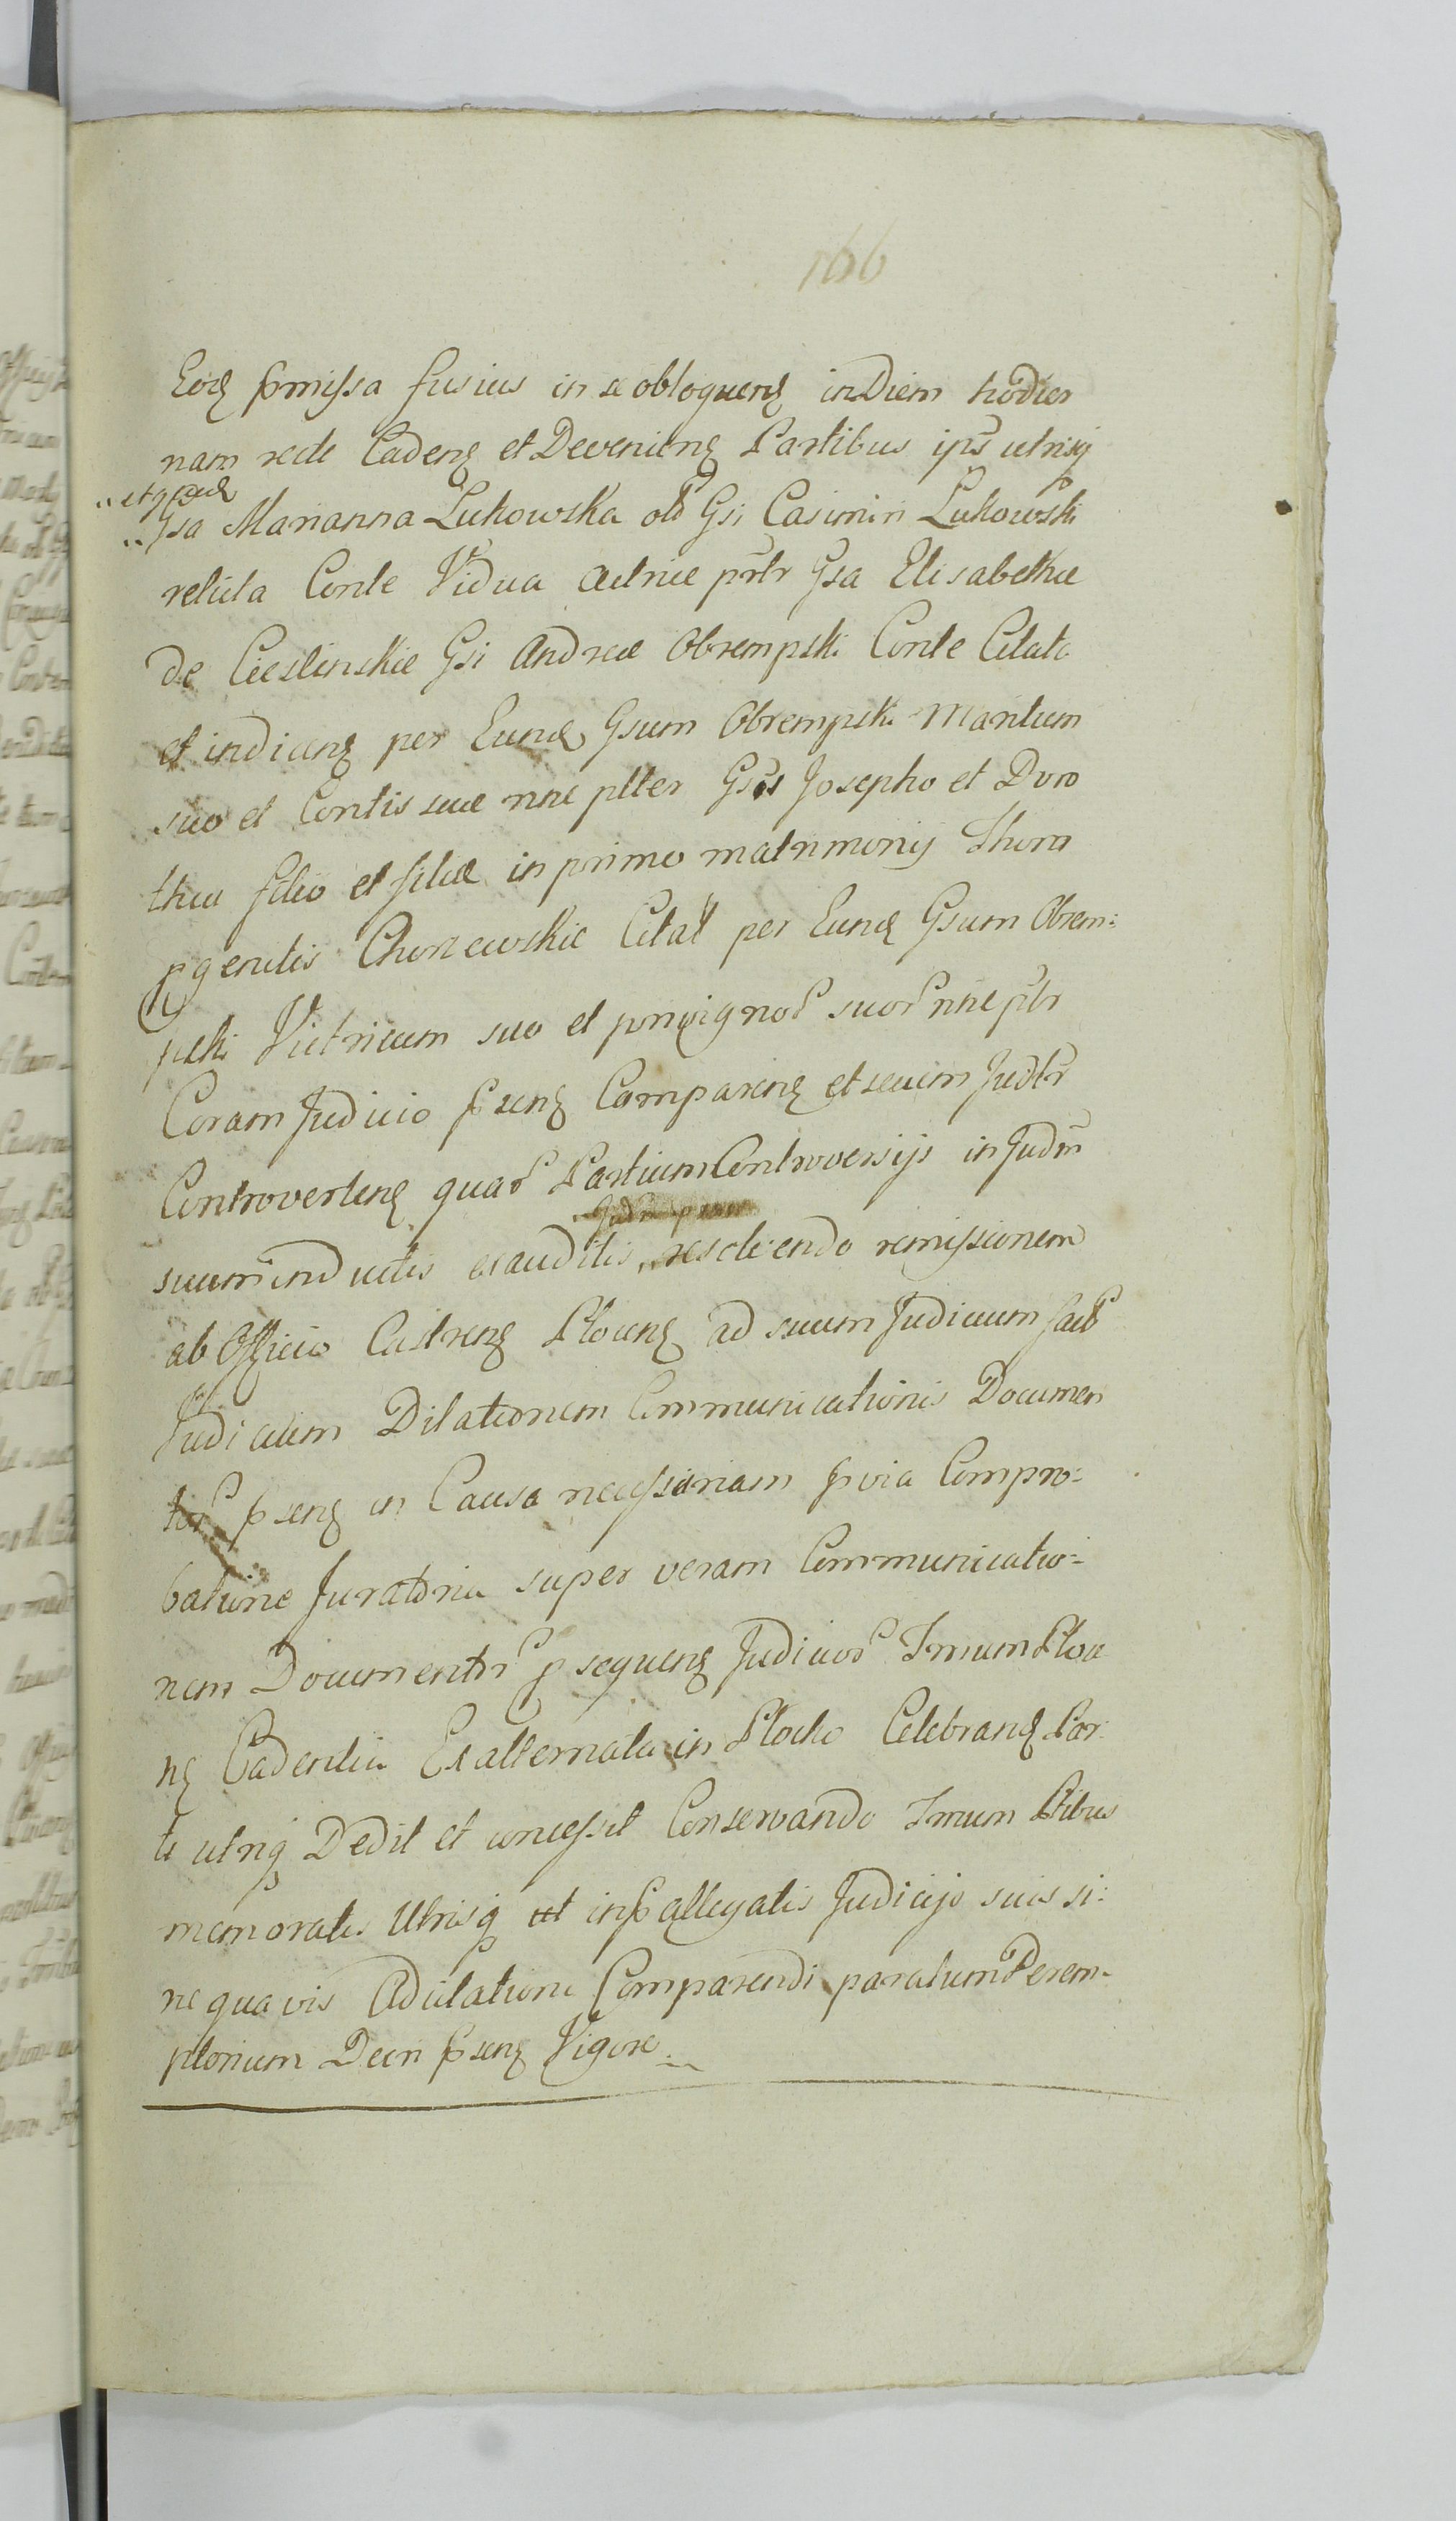 166
Eoq pmissa fusius in se obloquenq in Diem hodier
nam recte Cadenq et Devenienq Partibus ips utrisq
et qpad
Gsa Marianna Lukowska olb Gsi Casimiri Lukowski
relicta Conte Vidua Actrice pntr Gsa Elisabetha
de Cieslinskie Gsi Andreæ Obrempski Conte Citata
et indicenq per Eund Gsum Obrempski Maritum
suo et Contis suæ nne plter Gsis Josepho et Doro
thea filio et filiæ in primo matrimonij Thoro
pgenitis Chonewskie Citat per Eund Gsum Obrem:
pski Vietricum suo et privignor suor nne pltr
Coram Judicio psenq Comparenq et secum Judtr
Controvertenq quar Partium Controversijs in Judm
suum inductis exauditis, resolvendo remissionem
ab Officio Castrenq Plocenq ad suum Judicium fact
Judicium Dilationem Communicationis Documen
tor psenq in Causa necessariam pvia Compro:
batione Juratoria super veram Communicatio:
nem Documentor p sequenq Judicior Trmum Ploce
nq Cadentia Ex alternata in Plocko Celebranq Par
ti utriq Dedit et concessit Conservando Trmum Ptibus
memoratis Utrisq ut in pallegatis Judicijs suis si:
ne quavis Adcitatione Comparendi paratum Perem-
ptorium Decri psenq Vigore